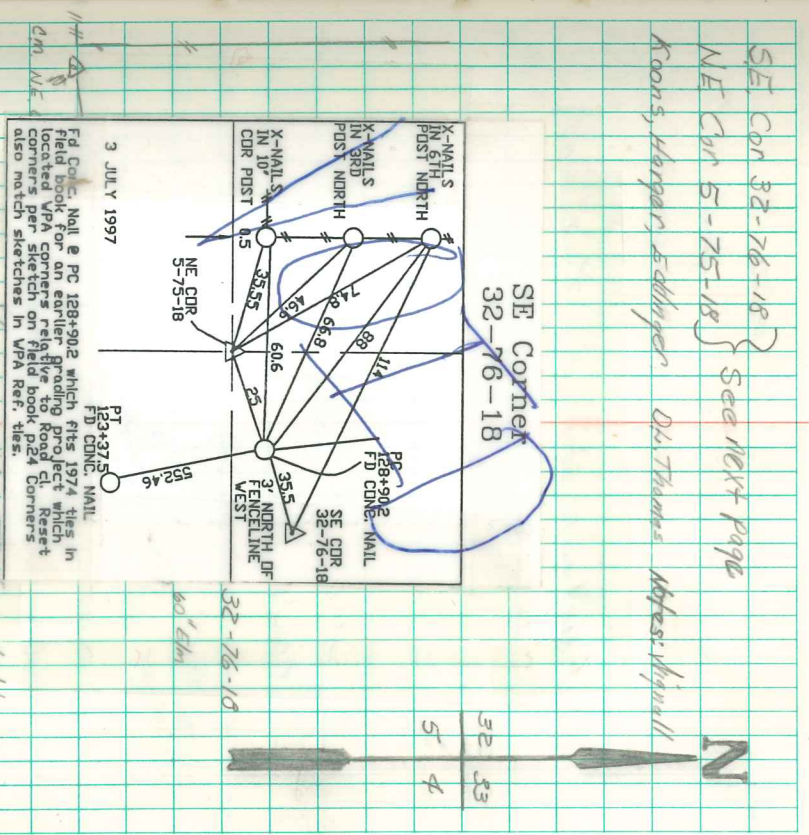 S.E. Cor 32-76-18
N.E. Cor 5-75-18
See next page
Koons, Harger, Edlinger D.W. Thomas Notes:
N
32 33
5 4
SE Corner
32-76-18
X-NAILS
IN 6TH
POST NORTH
X-NAILS
IN 3RD
POST NORTH
X-NAILS
IN 10"
COR POST
0.5
35.55
46.6
74.8
66.8
88
114
60.6
25
35.5
NE COR
5-75-18
PC
128+90.2
FD CONC. NAIL
SE COR
32-76-18
3' NORTH OF
FENCELINE
WEST
552.46
PT
123+37.5
FD CONC. NAIL
3 JULY 1997
Fd Conc. Nail @ PC 128+90.2 which fits 1974 ties in
field book for an earlier grading project which
located WPA corners relative to Road cl. Reset
corners per sketch on field book p.24 Corners
also match sketches in WPA Ref. ties.
32-76-18
60" Elm